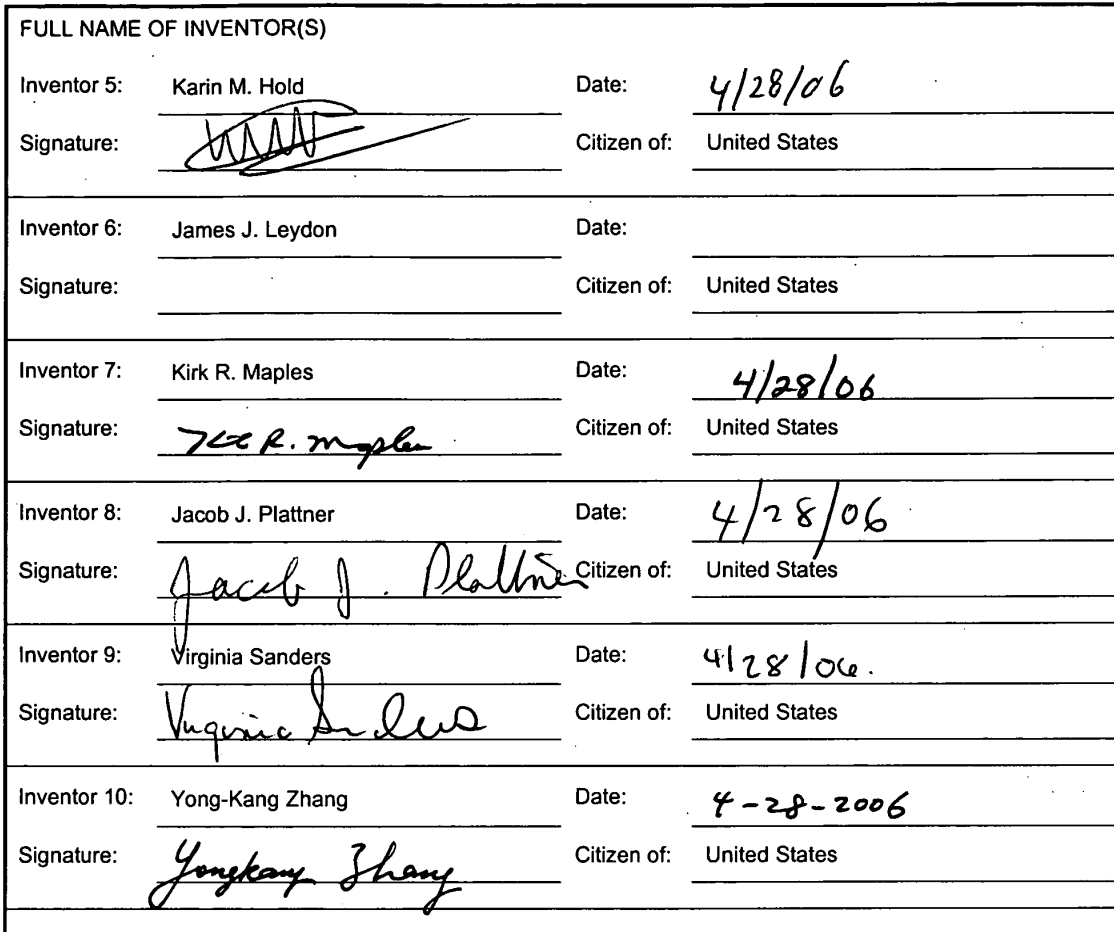 FULL NAME OF INVENTOR(S)
Inventor 5: Karin M. Hold Date: 4/28/06
Signature: Citizen of: United States
Inventor 6: James J. Leydon Date:
Signature: Citizen of: United States
Inventor 7: Kirk R. Maples Date: 4/28/06
Signature: R. Maples Citizen of: United States
Inventor 8: Jacob J. Plattner Date: 4/28/06
Signature: Jacob J. Plattner Citizen of: United States
Inventor 9: Virginia Sanders Date: 4/28/06.
Signature: Virginia Sanders Citizen of: United States
Inventor 10: Yong-Kang Zhang Date: 4-28-2006
Signature: Yongkang Zhang Citizen of: United States